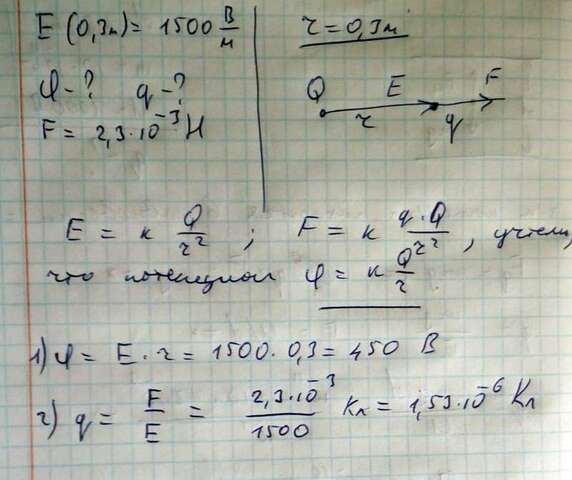 E (0,3м) = 1500 В/м
r = 0,3м
φ - ? q - ?
F = 2,3·10⁻³ Н
Q E F
r q
E = к Q/r² ; F = к q·Q/r² , учтем,
что потенциал φ = к Q/r
1) φ = E·r = 1500·0,3 = 450 В
2) q = F/E = 2,3·10⁻³/1500 Кл = 1,53·10⁻⁶ Кл